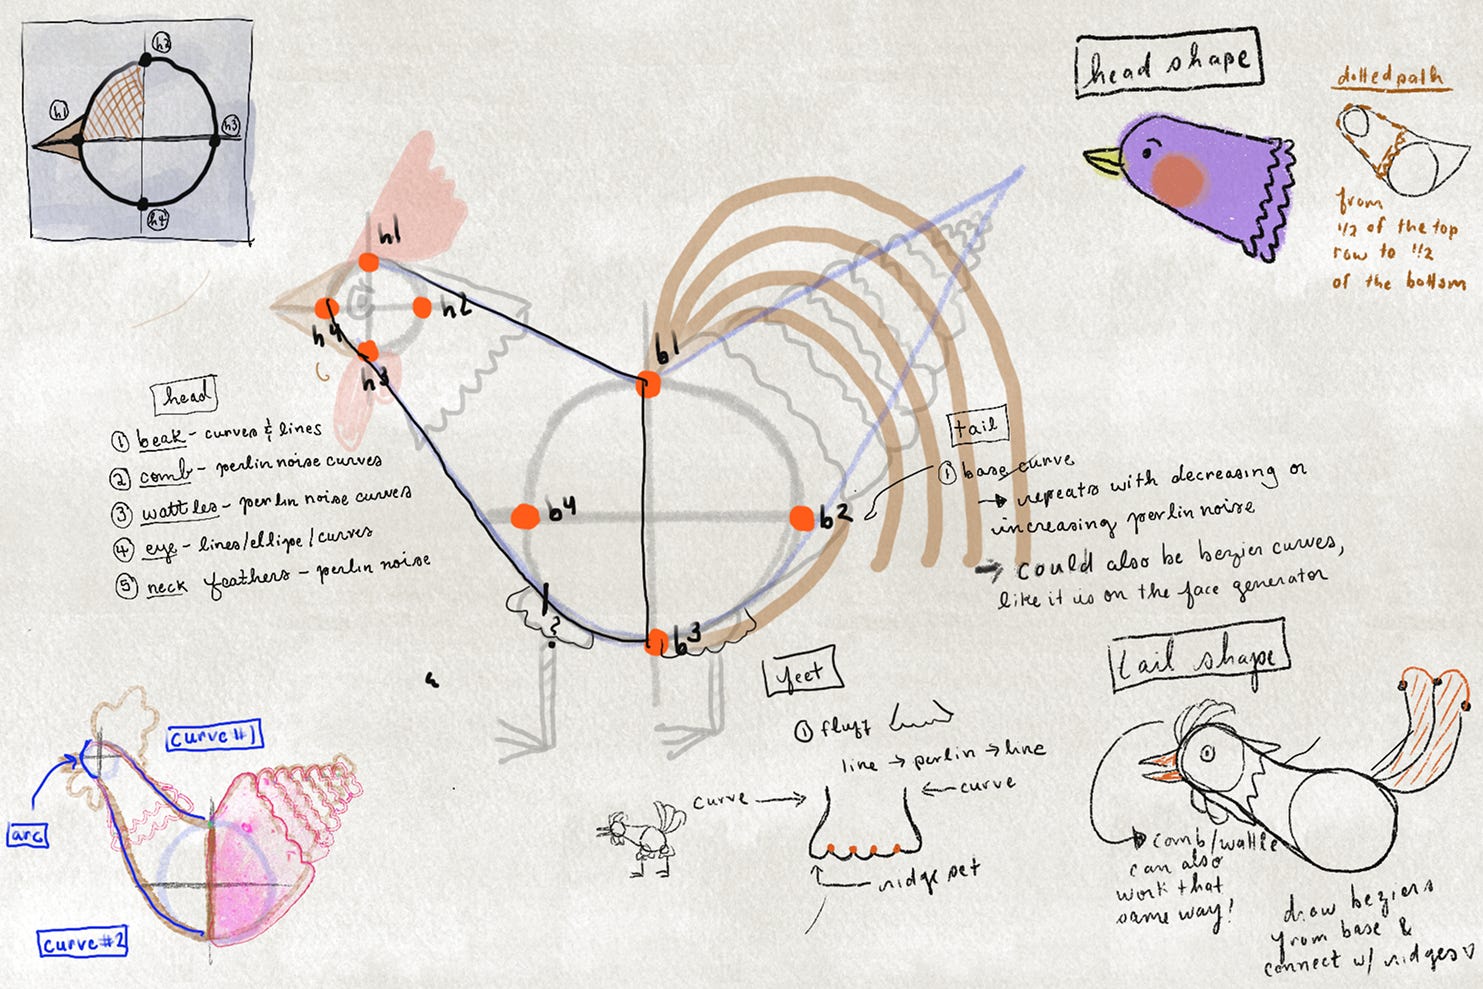 h2
h1
h3
h4
head shape
dotted path
from
1/2 of the top
row to 1/2
of the bottom
h1
h2
h4
h3
b1
b4
b2
b3
head
① beak - curves & lines
② comb - perlin noise curves
③ wattles - perlin noise curves
④ eye - lines/ellipe/curves
⑤ neck feathers - perlin noise
tail
① base curve
→ repeats with decreasing or
increasing perlin noise
→ could also be bezier curves,
like it is on the face generator
feet
① fluff
line → perlin → line
curve
curve
ridge set
tail shape
comb/wattle
can also
work that
same way!
draw beziers
from base &
connect w/ ridges
curve #1
arc
curve #2